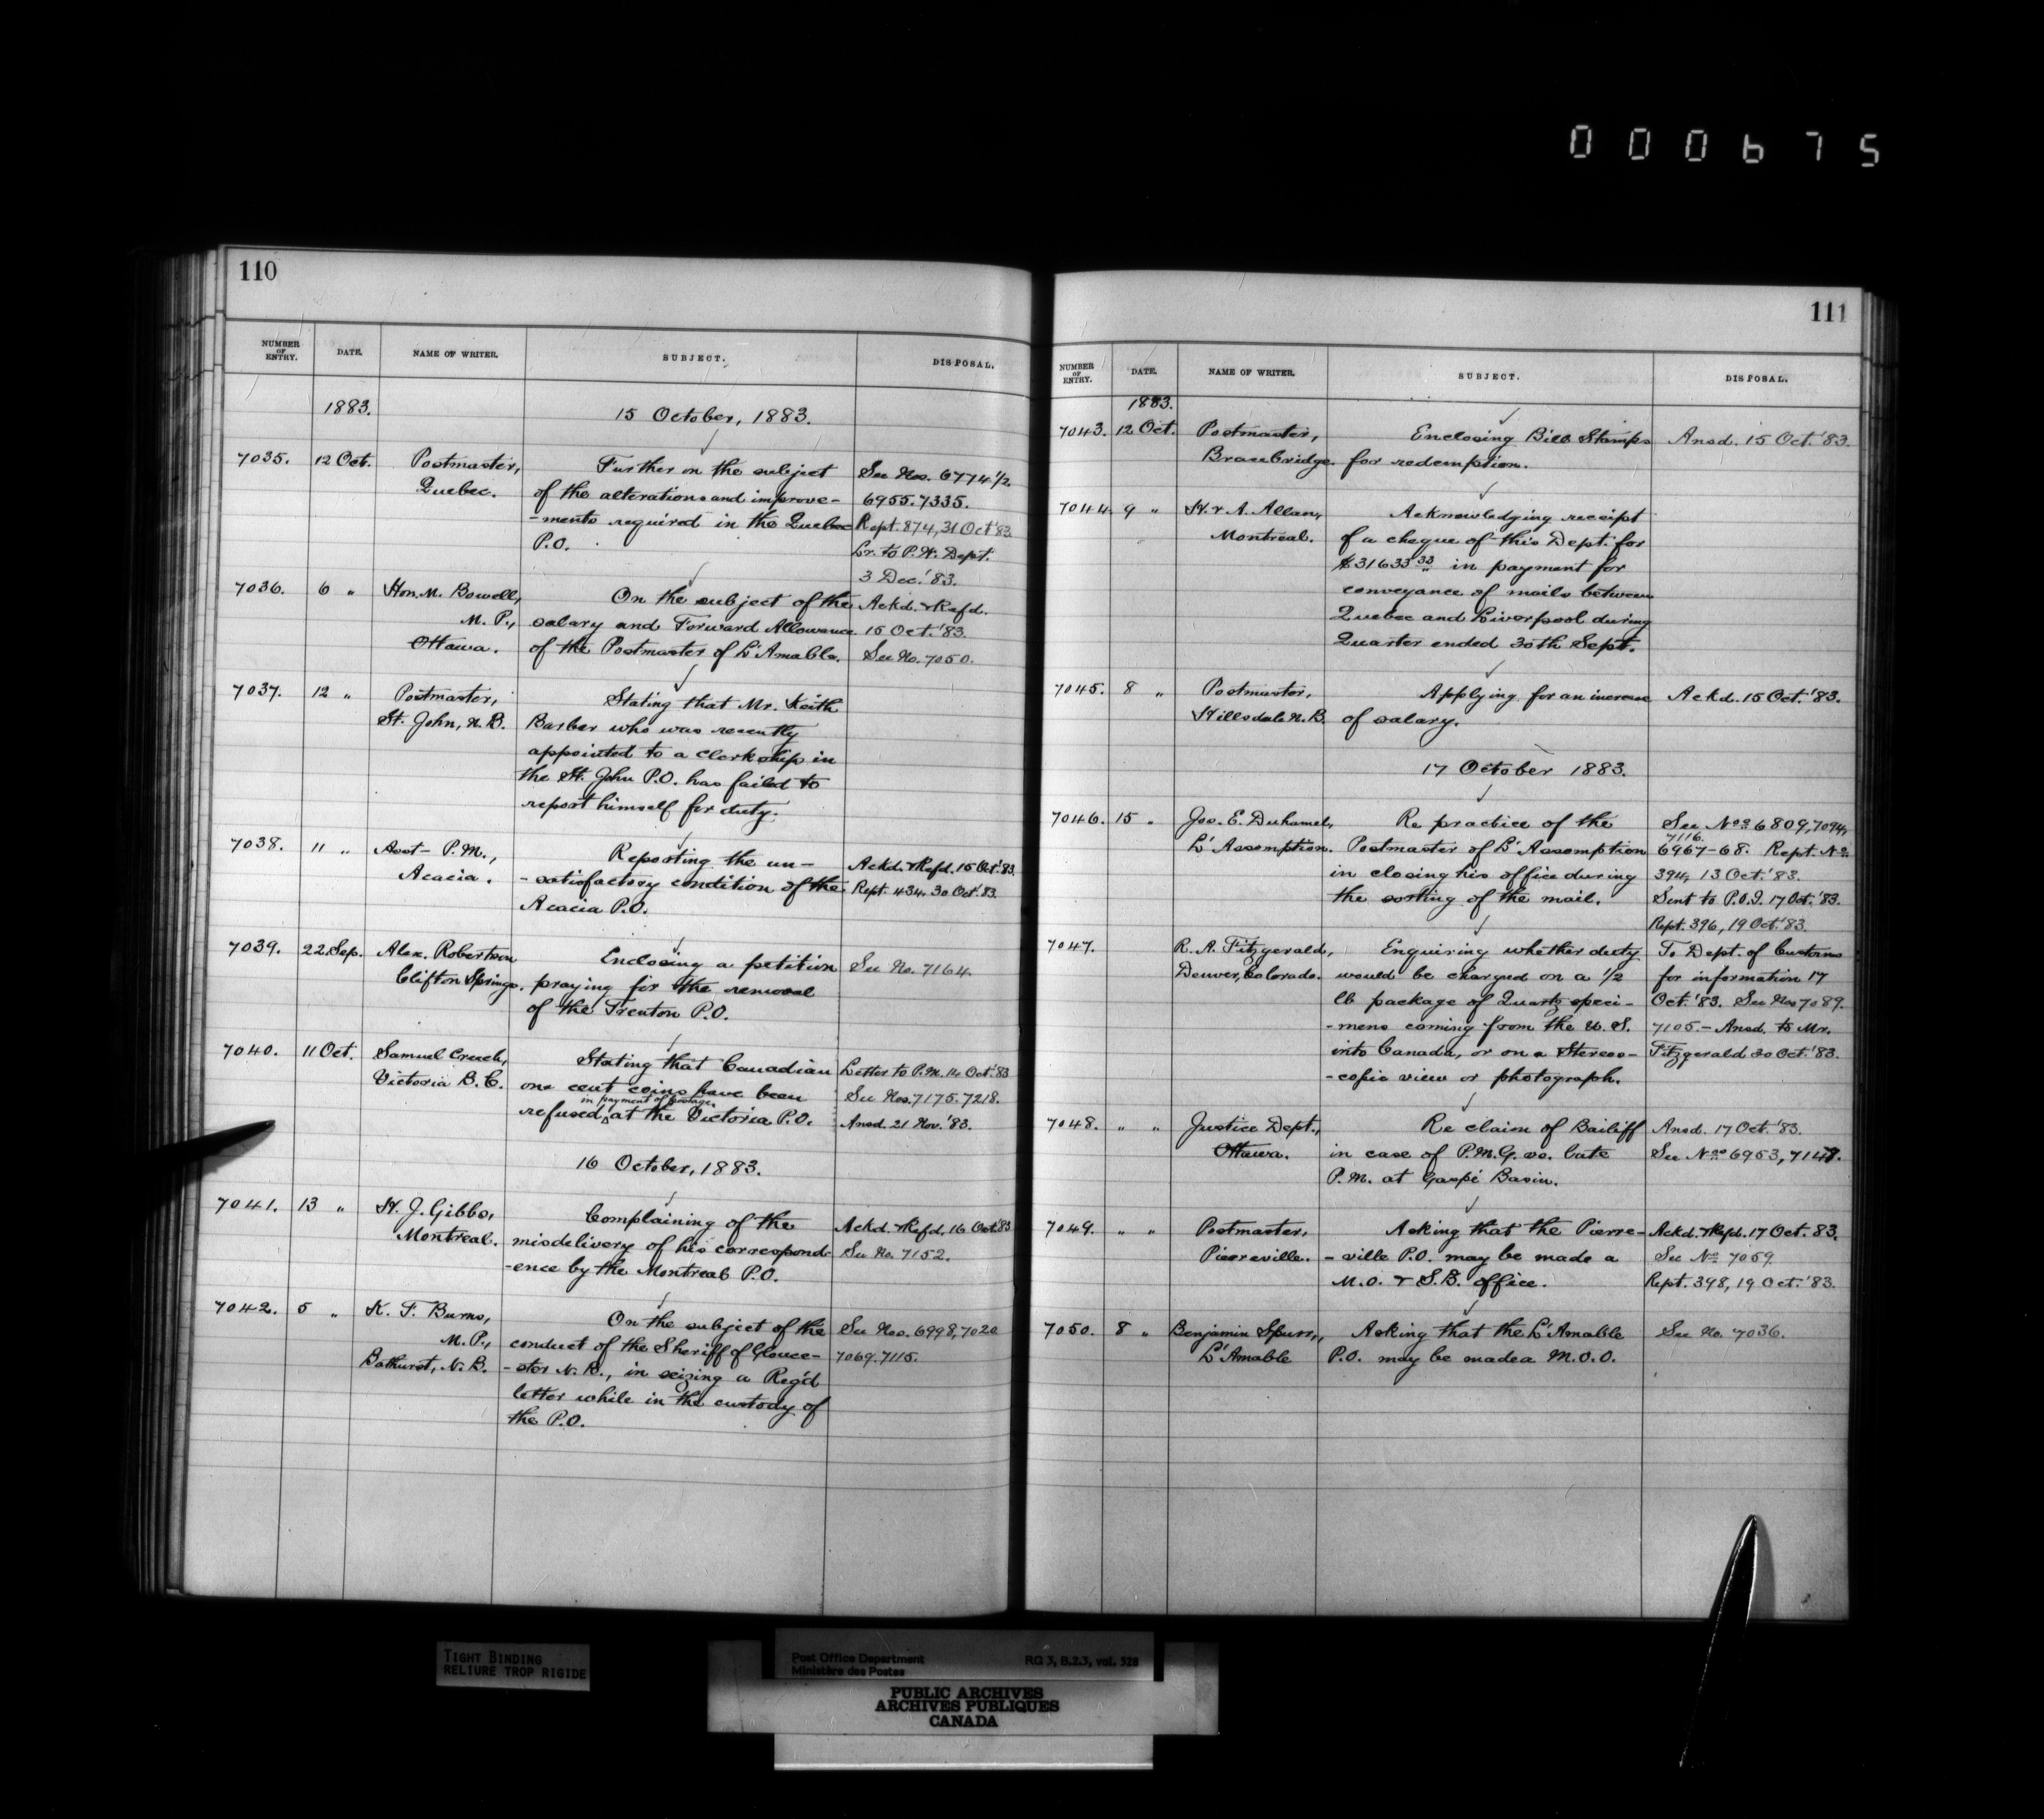 000675
110
NUMBER OF ENTRY. DATE. NAME OF WRITER. SUBJECT. DISPOSAL.
1883. 15 October, 1883.
7035. 12 Oct. Postmaster, Further on the subject See Nos. 6774 1/2
Quebec. of the alterations and improve- 6955. 7335.
-ments required in the Quebec Rept. 874, 31 Oct '83
P.O. Lr. to P.W. Dept.
3 Dec. '83.
7036. 6 " Hon. M. Bowell, On the subject of the Ackd. & Refd.
M.P., salary and Forward Allowance 15 Oct. '83.
Ottawa. of the Postmaster of L'Amable. See No. 7050.
7037. 12 " Postmaster, Stating that Mr. Keith
St. John, N.B. Barber who was recently
appointed to a clerkship in
the St. John P.O. has failed to
report himself for duty.
7038. 11 " Asst- P.M., Reporting the un- Ackd. & Refd. 15 Oct. '83.
Acacia. -satisfactory condition of the Rept. 434. 30 Oct. '83.
Acacia P.O.
7039. 22 Sep. Alex. Robertson Enclosing a petition See No. 7164.
Clifton Springs. praying for the removal
of the Trenton P.O.
7040. 11 Oct. Samuel Creech, Stating that Canadian Letter to P.M. 14 Oct. '83
Victoria B.C. one cent coins have been See Nos. 7175. 7218.
in payment of postage
refused at the Victoria P.O. Ansd. 21 Nov. '83.
16 October, 1883.
7041. 13 " H. J. Gibbs, Complaining of the Ackd. & Refd. 16 Oct. '83
Montreal. misdelivery of his correspond- See No. 7152.
-ence by the Montreal P.O.
7042. 5 " K. F. Burns, On the subject of the See Nos. 6998, 7020
M.P., conduct of the Sheriff of Glouce- 7069. 7115.
Bathurst, N.B. -ster N.B., in seizing a Reg'd
letter while in the custody of
the P.O.
111
NUMBER OF ENTRY. DATE. NAME OF WRITER. SUBJECT. DISPOSAL.
1883.
7043. 12 Oct. Postmaster, Enclosing Bill Stamps Ansd. 15 Oct. '83.
Bracebridge. for redemption.
7044. 9 " H. & A. Allan, Acknowledging receipt
Montreal. of a cheque of this Dept. for
$31633 33 in payment for
conveyance of mails between
Quebec and Liverpool during
Quarter ended 30th Sept.
7045. 8 " Postmaster, Applying for an increase Ackd. 15 Oct. '83.
Hillsdale N.B. of salary.
17 October 1883.
7046. 15 " Jos. E. Duhamel, Re practice of the See Nos 6809, 7094,
7116.
L'Assomption. Postmaster of L'Assomption 6967-68. Rept. No.
in closing his office during 394, 13 Oct. '83.
the sorting of the mail. Sent to P.O.I. 17 Oct. '83.
Rept. 396, 19 Oct. '83.
7047. R. A. Fitzgerald, Enquiring whether duty To Dept. of Customs
Denver, Colorado. would be charged on a 1/2 for information 17
lb package of Quartz speci- Oct. '83. See Nos 7089.
-mens coming from the U.S. 7105.- Ansd. to Mr.
into Canada, or on a Stereos- Fitzgerald 30 Oct. '83.
-copic view or photograph.
7048. " " Justice Dept., Re claim of Bailiff Ansd. 17 Oct. '83.
Ottawa. in case of P.M.G. vs. late See Nos 6953,
P.M. at Gaspé Basin.
7049. " " Postmaster, Asking that the Pierre- Ackd. & Refd. 17 Oct. 83.
Pierreville. -ville P.O. may be made a See No 7059.
M.O. & S.B. office. Rept. 398, 19 Oct. '83.
7050. 8 " Benjamin Spurr, Asking that the L'Amable See No. 7036.
L'Amable P.O. may be made a M.O.O.
TIGHT BINDING
RELIURE TROP RIGIDE
Post Office Department RG 3, B.2.3, vol. 528
Ministère des Postes
PUBLIC ARCHIVES
ARCHIVES PUBLIQUES
CANADA